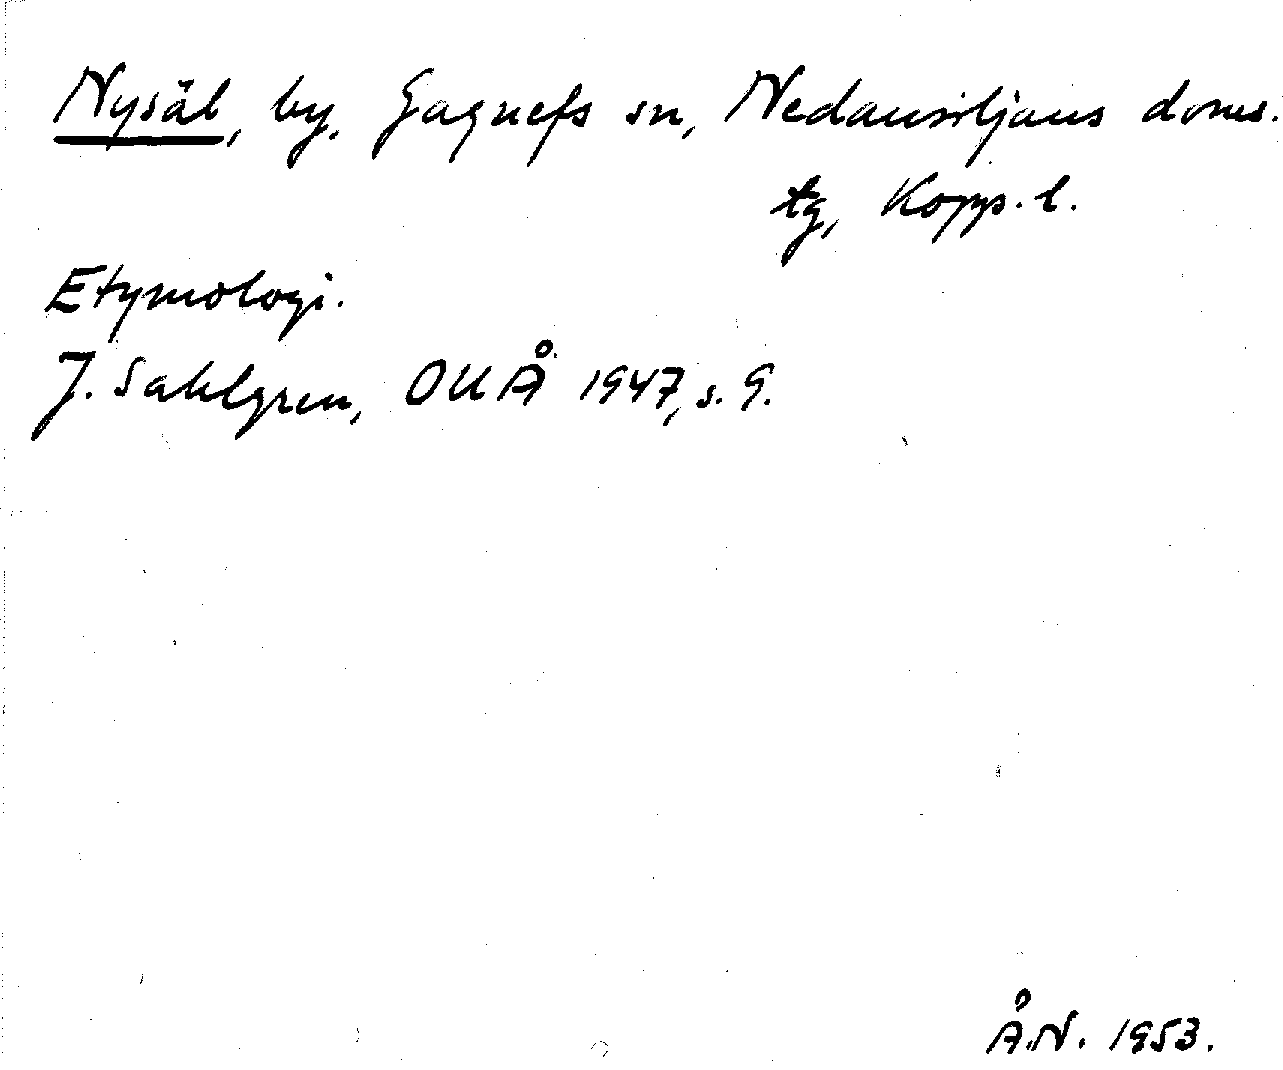 Nysäl, by, Gagnefs sn, Nedansiljans doms.
tg, Kopp. l.
Etymologi.
J. Sahlgren, OUÅ 1947, s. 9.
Å.N. 1953.